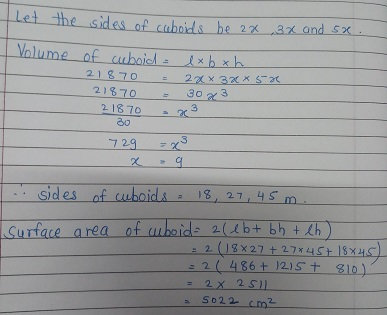 Let the sides of cuboids be 2x, 3x and 5x.
Volume of cuboid = l × b × h
21870 = 2x × 3x × 5x
21870 = 30x³
21870/30 = x³
729 = x³
x = 9
∴ sides of cuboids = 18, 27, 45 m.
Surface area of cuboid = 2(lb + bh + lh)
= 2(18×27 + 27×45 + 18×45)
= 2(486 + 1215 + 810)
= 2 × 2511
= 5022 cm²